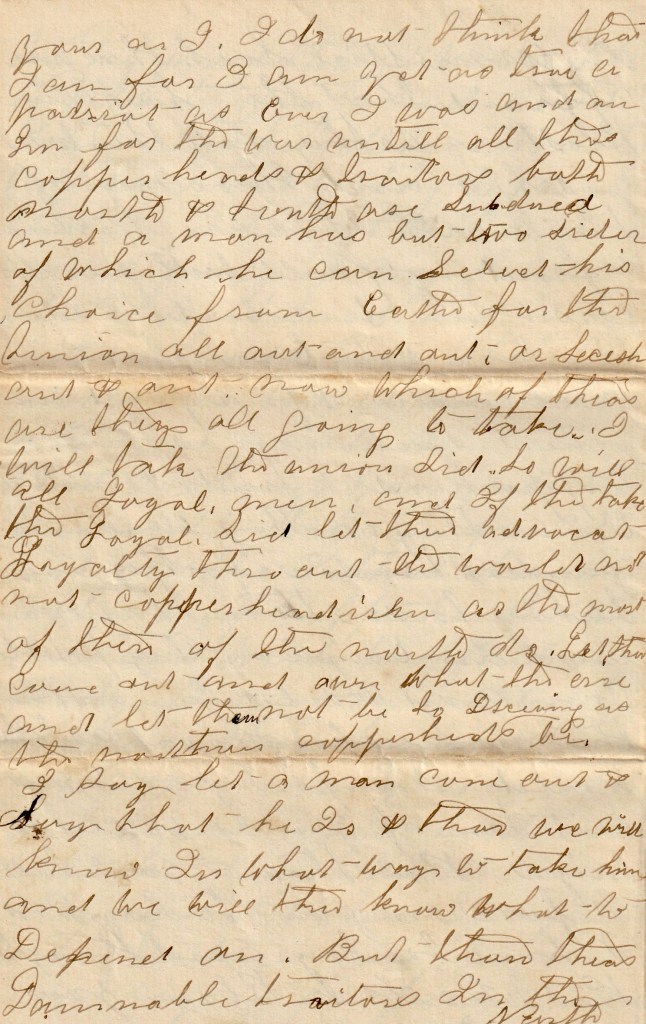 yous as I. I do not think that
I am for I am yet as true a
patriot as Ever I was and am
In for the war untill all thes
copper heads & traitors both
north & south are Subdued
and a man has but two sides
of which he can Select his
choice from Eathe for the
Union all out and out, or Secesh
out & out. now which of theas
are they all going to take. I
will take the union Sid. So will
all Loyal, men, and If the take
the Loyal. Sid let them advocat
Loyalty throout the world
not copperhendism as the most
of them of the north do. Let them
come out and own what the are
and let them not be so Deceiving as
the northern copperheads be.
I say let a man come out &
Say what he Is & then we will
know In what way to take him
and we will then know what to
Depend on. But thean theas
Damnable traitors In the
North